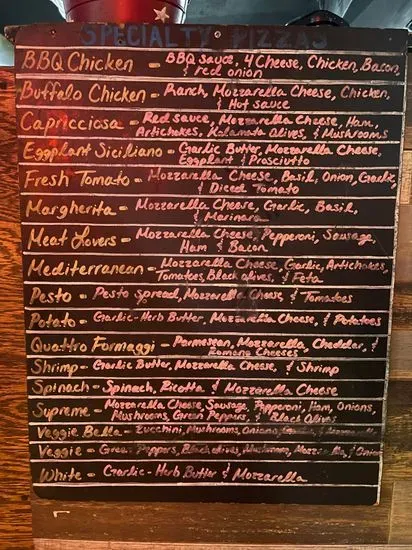 SPECIALTY PIZZAS
BBQ Chicken - BBQ Sauce, 4 Cheese, Chicken, Bacon,
& red onion
Buffalo Chicken - Ranch, Mozzarella Cheese, Chicken,
& Hot sauce
Capricciosa - Red Sauce, Mozzarella Cheese, Ham,
Artichokes, Kalamata Olives, & Mushrooms
Eggplant Siciliano - Garlic Butter, Mozzarella Cheese,
Eggplant & Prosciutto
Fresh Tomato - Mozzarella Cheese, Basil, Onion, Garlic,
& Diced Tomato
Margherita - Mozzarella Cheese, Garlic, Basil,
& Marinara
Meat Lovers - Mozzarella Cheese, Pepperoni, Sausage,
Ham & Bacon
Mediterranean - Mozzarella Cheese, Garlic, Artichokes,
Tomatoes, Black olives, & Feta
Pesto - Pesto Spread, Mozzarella Cheese, & Tomatoes
Potato - Garlic-Herb Butter, Mozzarella Cheese, & Potatoes
Quattro Formaggi - Parmesan, Mozzarella, Cheddar, &
Romano Cheeses
Shrimp - Garlic Butter, Mozzarella Cheese, & Shrimp
Spinach - Spinach, Ricotta & Mozzarella Cheese
Supreme - Mozzarella Cheese, Sausage, Pepperoni, Ham, Onions,
Mushrooms, Green Peppers, & Black Olives
Veggie Bella - Zucchini, Mushrooms, Onions,
Veggie - Green Peppers, Black olives, Mushroom, Mozzarella, & Onion
White - Garlic-Herb Butter & Mozzarella